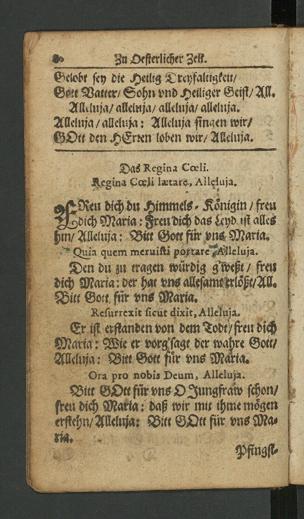 80 Zu Oesterlicher Zeit.
Gelobt sey die Heilig Dreyfaltigkeit/
Gott Vatter/ Sohn vnd Heiliger Geist/ All.
Alleluja/ alleluja/ alleluja/ alleluja.
Alleluja/ alleluja: Alleluja singen wir/
GOtt den HErren loben wir/ Alleluja.
Das Regina Cœli.
Regina Cœli lætare, Alleluja.
FReu dich du Himmels-Königin/ freu
dich Maria: Freu dich das Leyd ist alles
hin/ Alleluja: Bitt Gott für vns Maria.
Quia quem meruisti portare, Alleluja.
Den du zu tragen würdig g'weßt/ freu
dich Maria: der hat vns allesamt erlößt/ All.
Bitt Gott für vns Maria.
Resurrexit sicut dixit, Alleluja.
Er ist erstanden von dem Todt/ freu dich
Maria: Wie er vorg'sagt der wahre Gott/
Alleluja: Bitt Gott für vns Maria.
Ora pro nobis Deum, Alleluja.
Bitt GOtt für vns O Jungfraw schon/
freu dich Maria: daß wir mit ihme mögen
erstehn/ Alleluja: Bitt GOtt für vns Ma-
ria.
Pfingst-